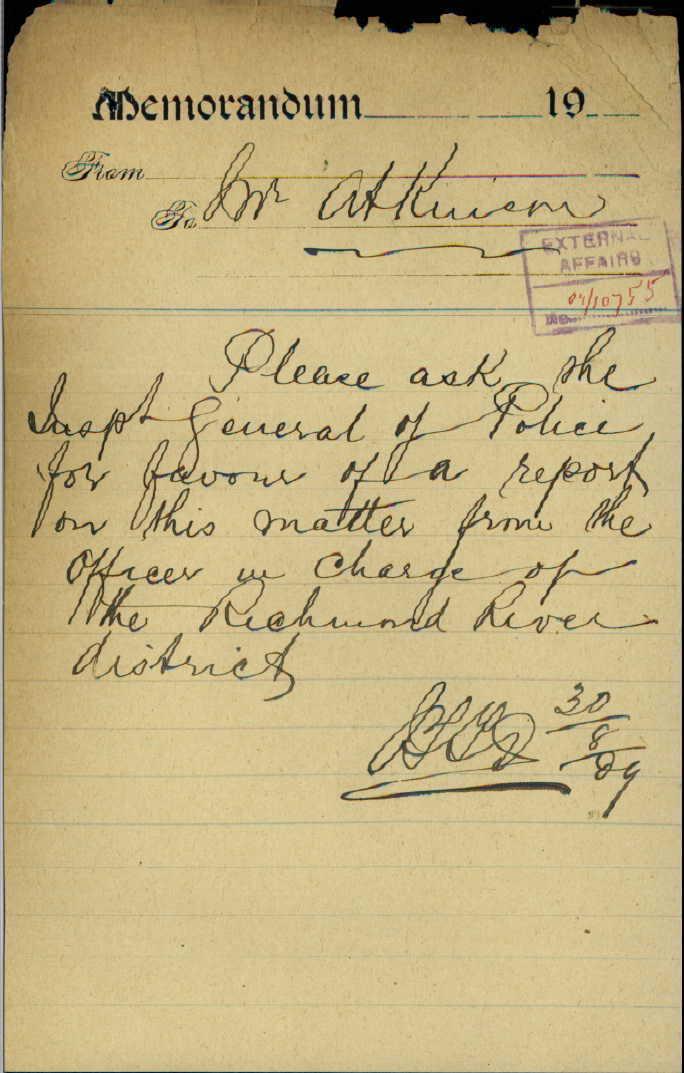 Memorandum 19
From
To Mr Atkinson
EXTERNAL
AFFAIRS
No. 09/10755
Please ask the
Inspt General of Police
for favour of a report
on this matter from the
Officer in charge of
the Richmond River
district
30/8/09